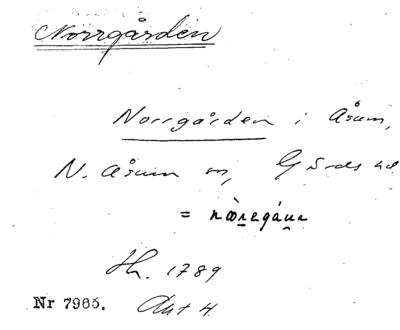 Norrgården
Norrgården i Åsum,
N. Åsum sn, Gärds hd
=
Hh. 1789
Nr 7965. Akt 4